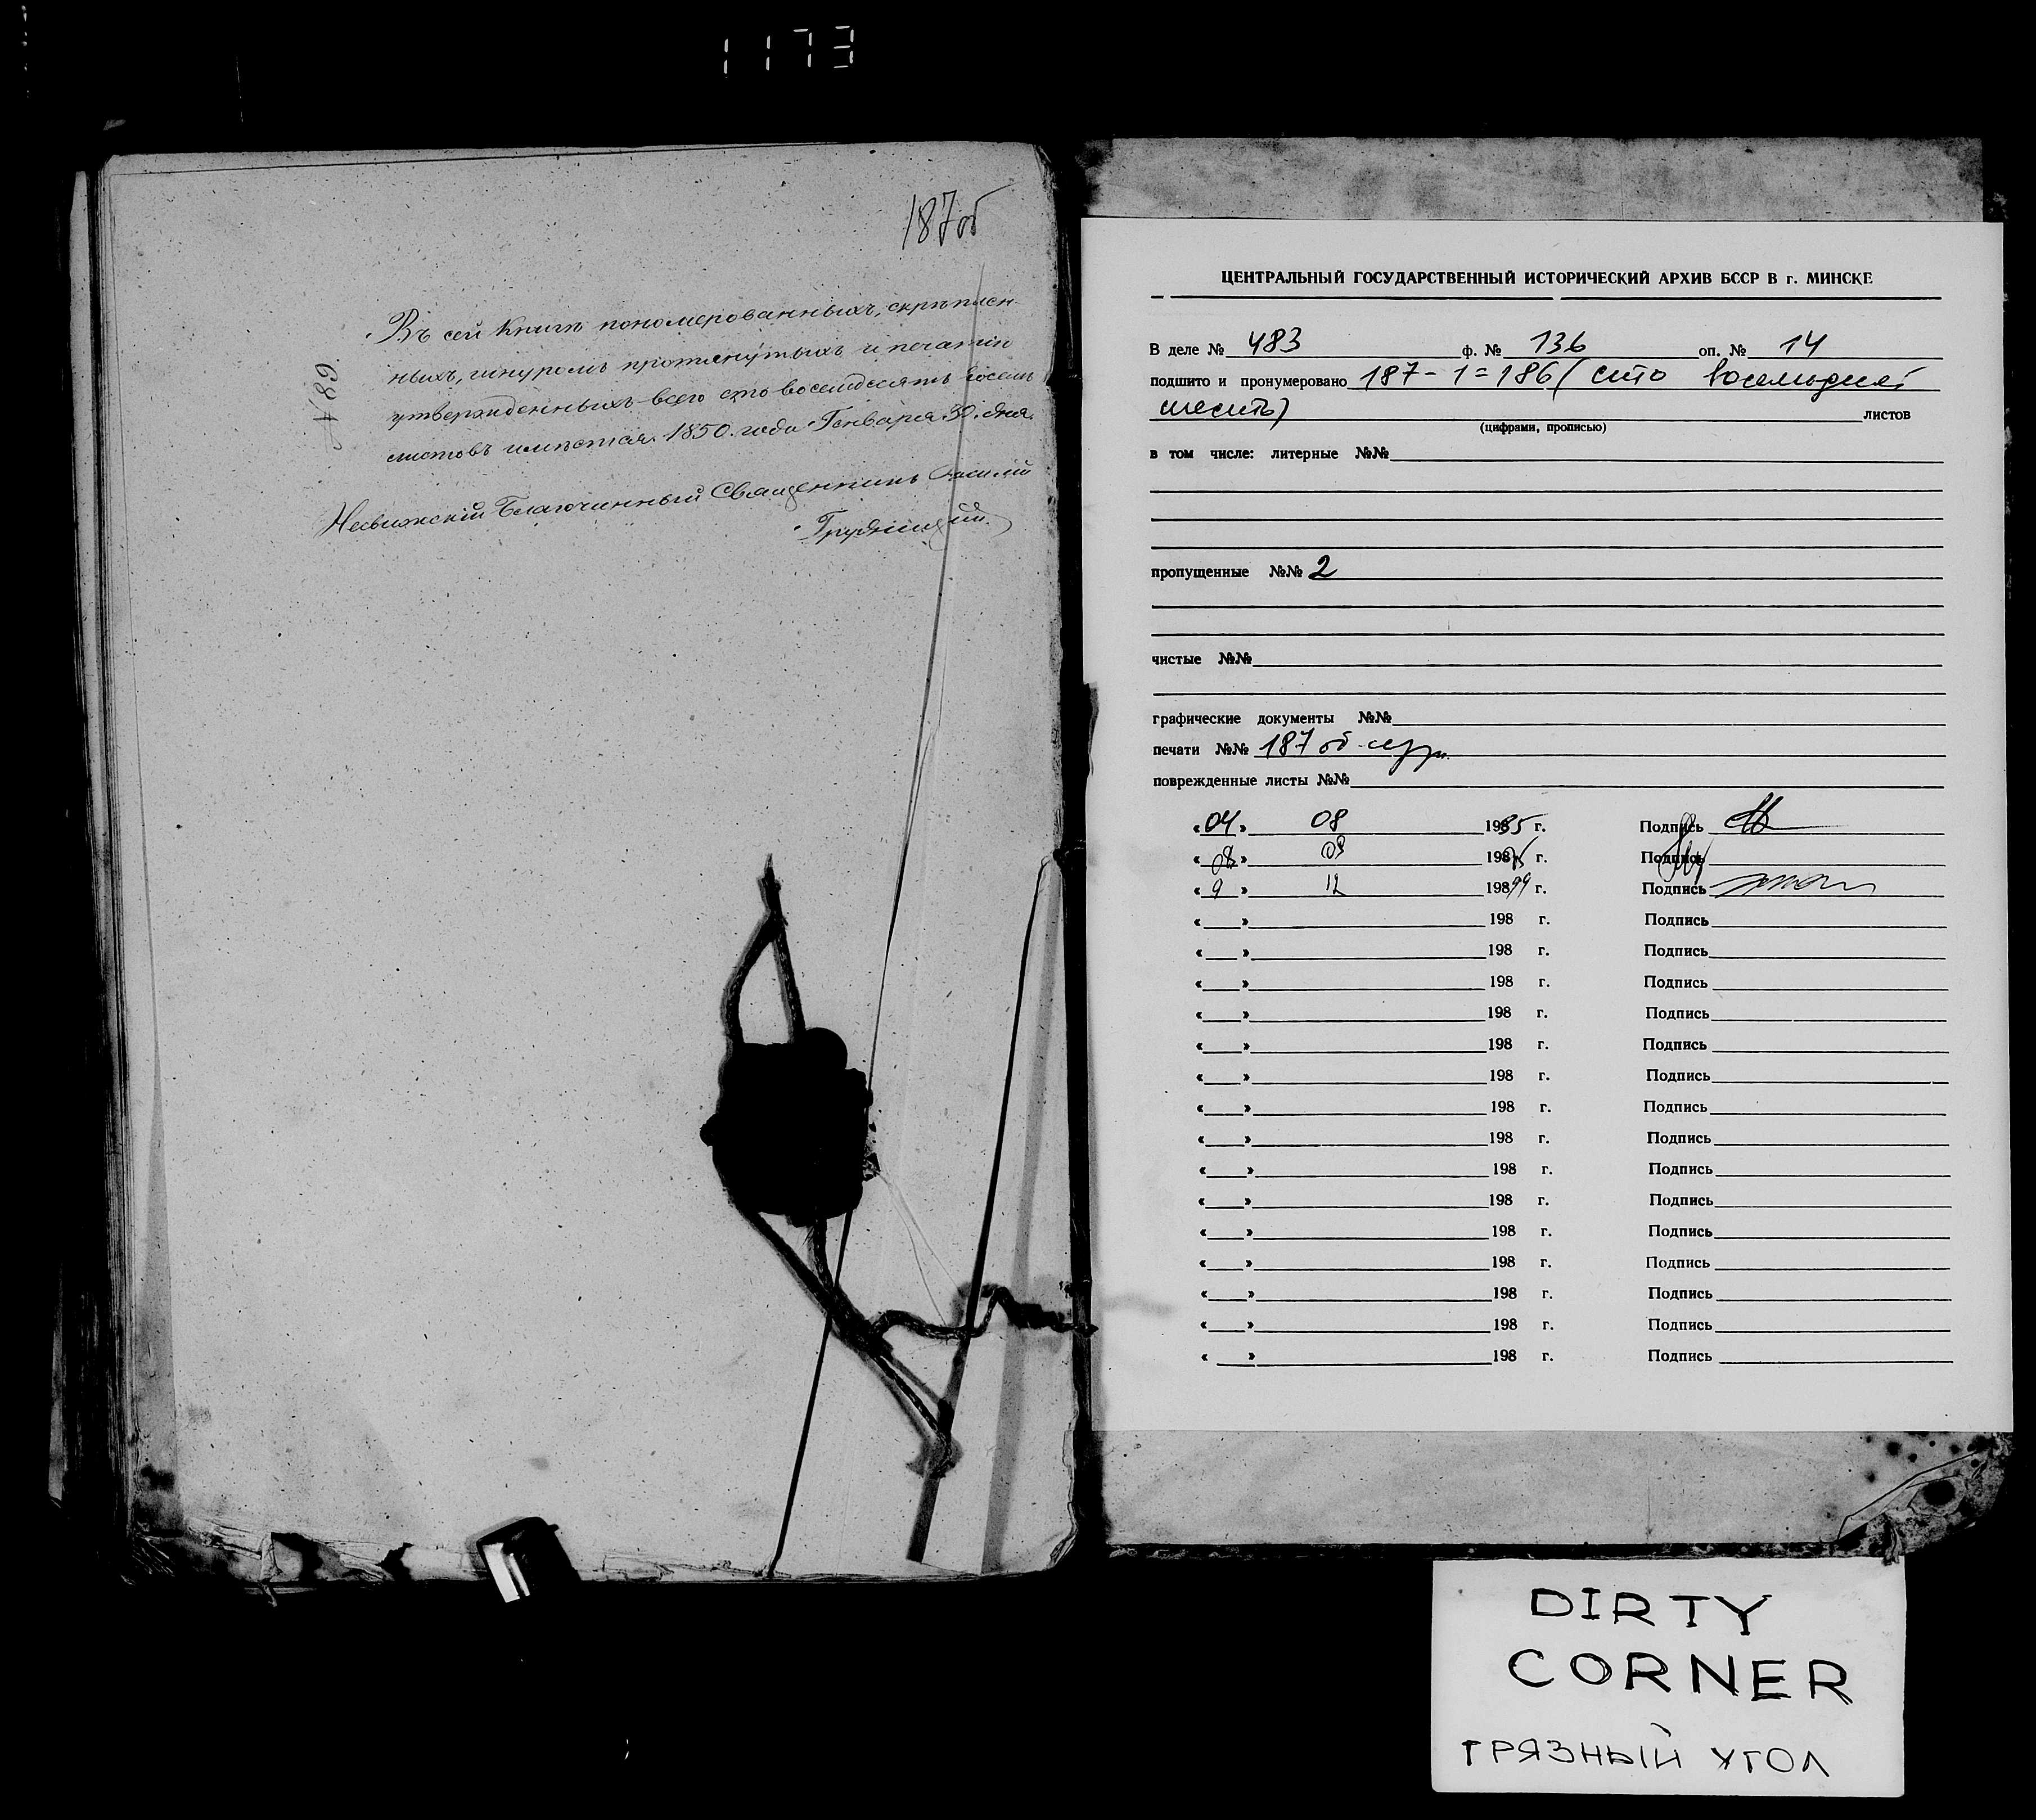 1173
187об
Въ сей Книгѣ пономерованныхъ, скрѣплен-
ныхъ, шнуромъ протянутыхъ и печатью
утвержденныхъ всего сто восемдесятъ восемь
листовъ имѣется. 1850. года Генваря 30. дня.
Несвижскій Благочинный Священникъ Василій
Грудницкій.
ЦЕНТРАЛЬНЫЙ ГОСУДАРСТВЕННЫЙ ИСТОРИЧЕСКИЙ АРХИВ БССР В г. МИНСКЕ
В деле № 483 ф. № 136 оп. № 14
подшито и пронумеровано 187-1=186 (сто восемьдесят
шесть) листов
(цифрами, прописью)
в том числе: литерные №№
пропущенные №№ 2
чистые №№
графические документы №№
печати №№ 187 об-
поврежденные листы №№
«04» 08 1985 г. Подпись
«08» 09 198 г. Подпись
«9» 12 19899 г. Подпись
«   » 198 г. Подпись
«   » 198 г. Подпись
«   » 198 г. Подпись
«   » 198 г. Подпись
«   » 198 г. Подпись
«   » 198 г. Подпись
«   » 198 г. Подпись
«   » 198 г. Подпись
«   » 198 г. Подпись
«   » 198 г. Подпись
«   » 198 г. Подпись
«   » 198 г. Подпись
«   » 198 г. Подпись
«   » 198 г. Подпись
«   » 198 г. Подпись
DIRTY
CORNER
ГРЯЗНЫЙ УГОЛ